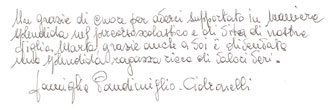 Un grazie di cuore per averci supportato in maniera
splendida nel percorso scolastico e di vita di nostra
figlia. Marta, grazie anche a voi è diventata
una splendida ragazza ricca di valori veri.
famiglia